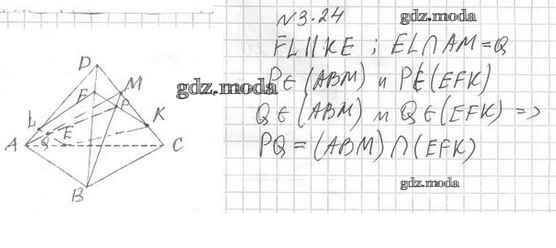 N3.24
gdz.moda
FL || KE ; EL ∩ AM = Q
P ∈ (ABM) и P ∈ (EFK)
Q ∈ (ABM) и Q ∈ (EFK) =>
PQ = (ABM) ∩ (EFK)
gdz.moda
gdz.moda
D
M
F
P
L
K
Q E
A
C
B